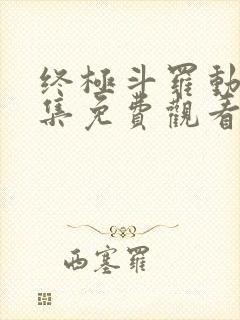 终極斗羅動
集免費觀看
西塞羅